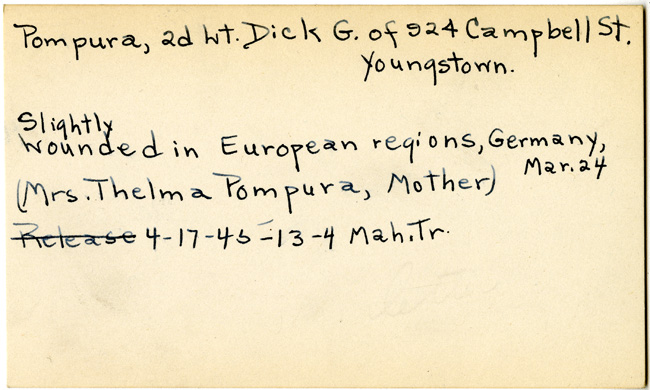 Pompura, 2d Lt. Dick G. of 924 Campbell St.
Youngstown.
Slightly
wounded in European regions, Germany,
Mar. 24
(Mrs. Thelma Pompura, Mother)
Release 4-17-45-13-4 Mah. Tr.